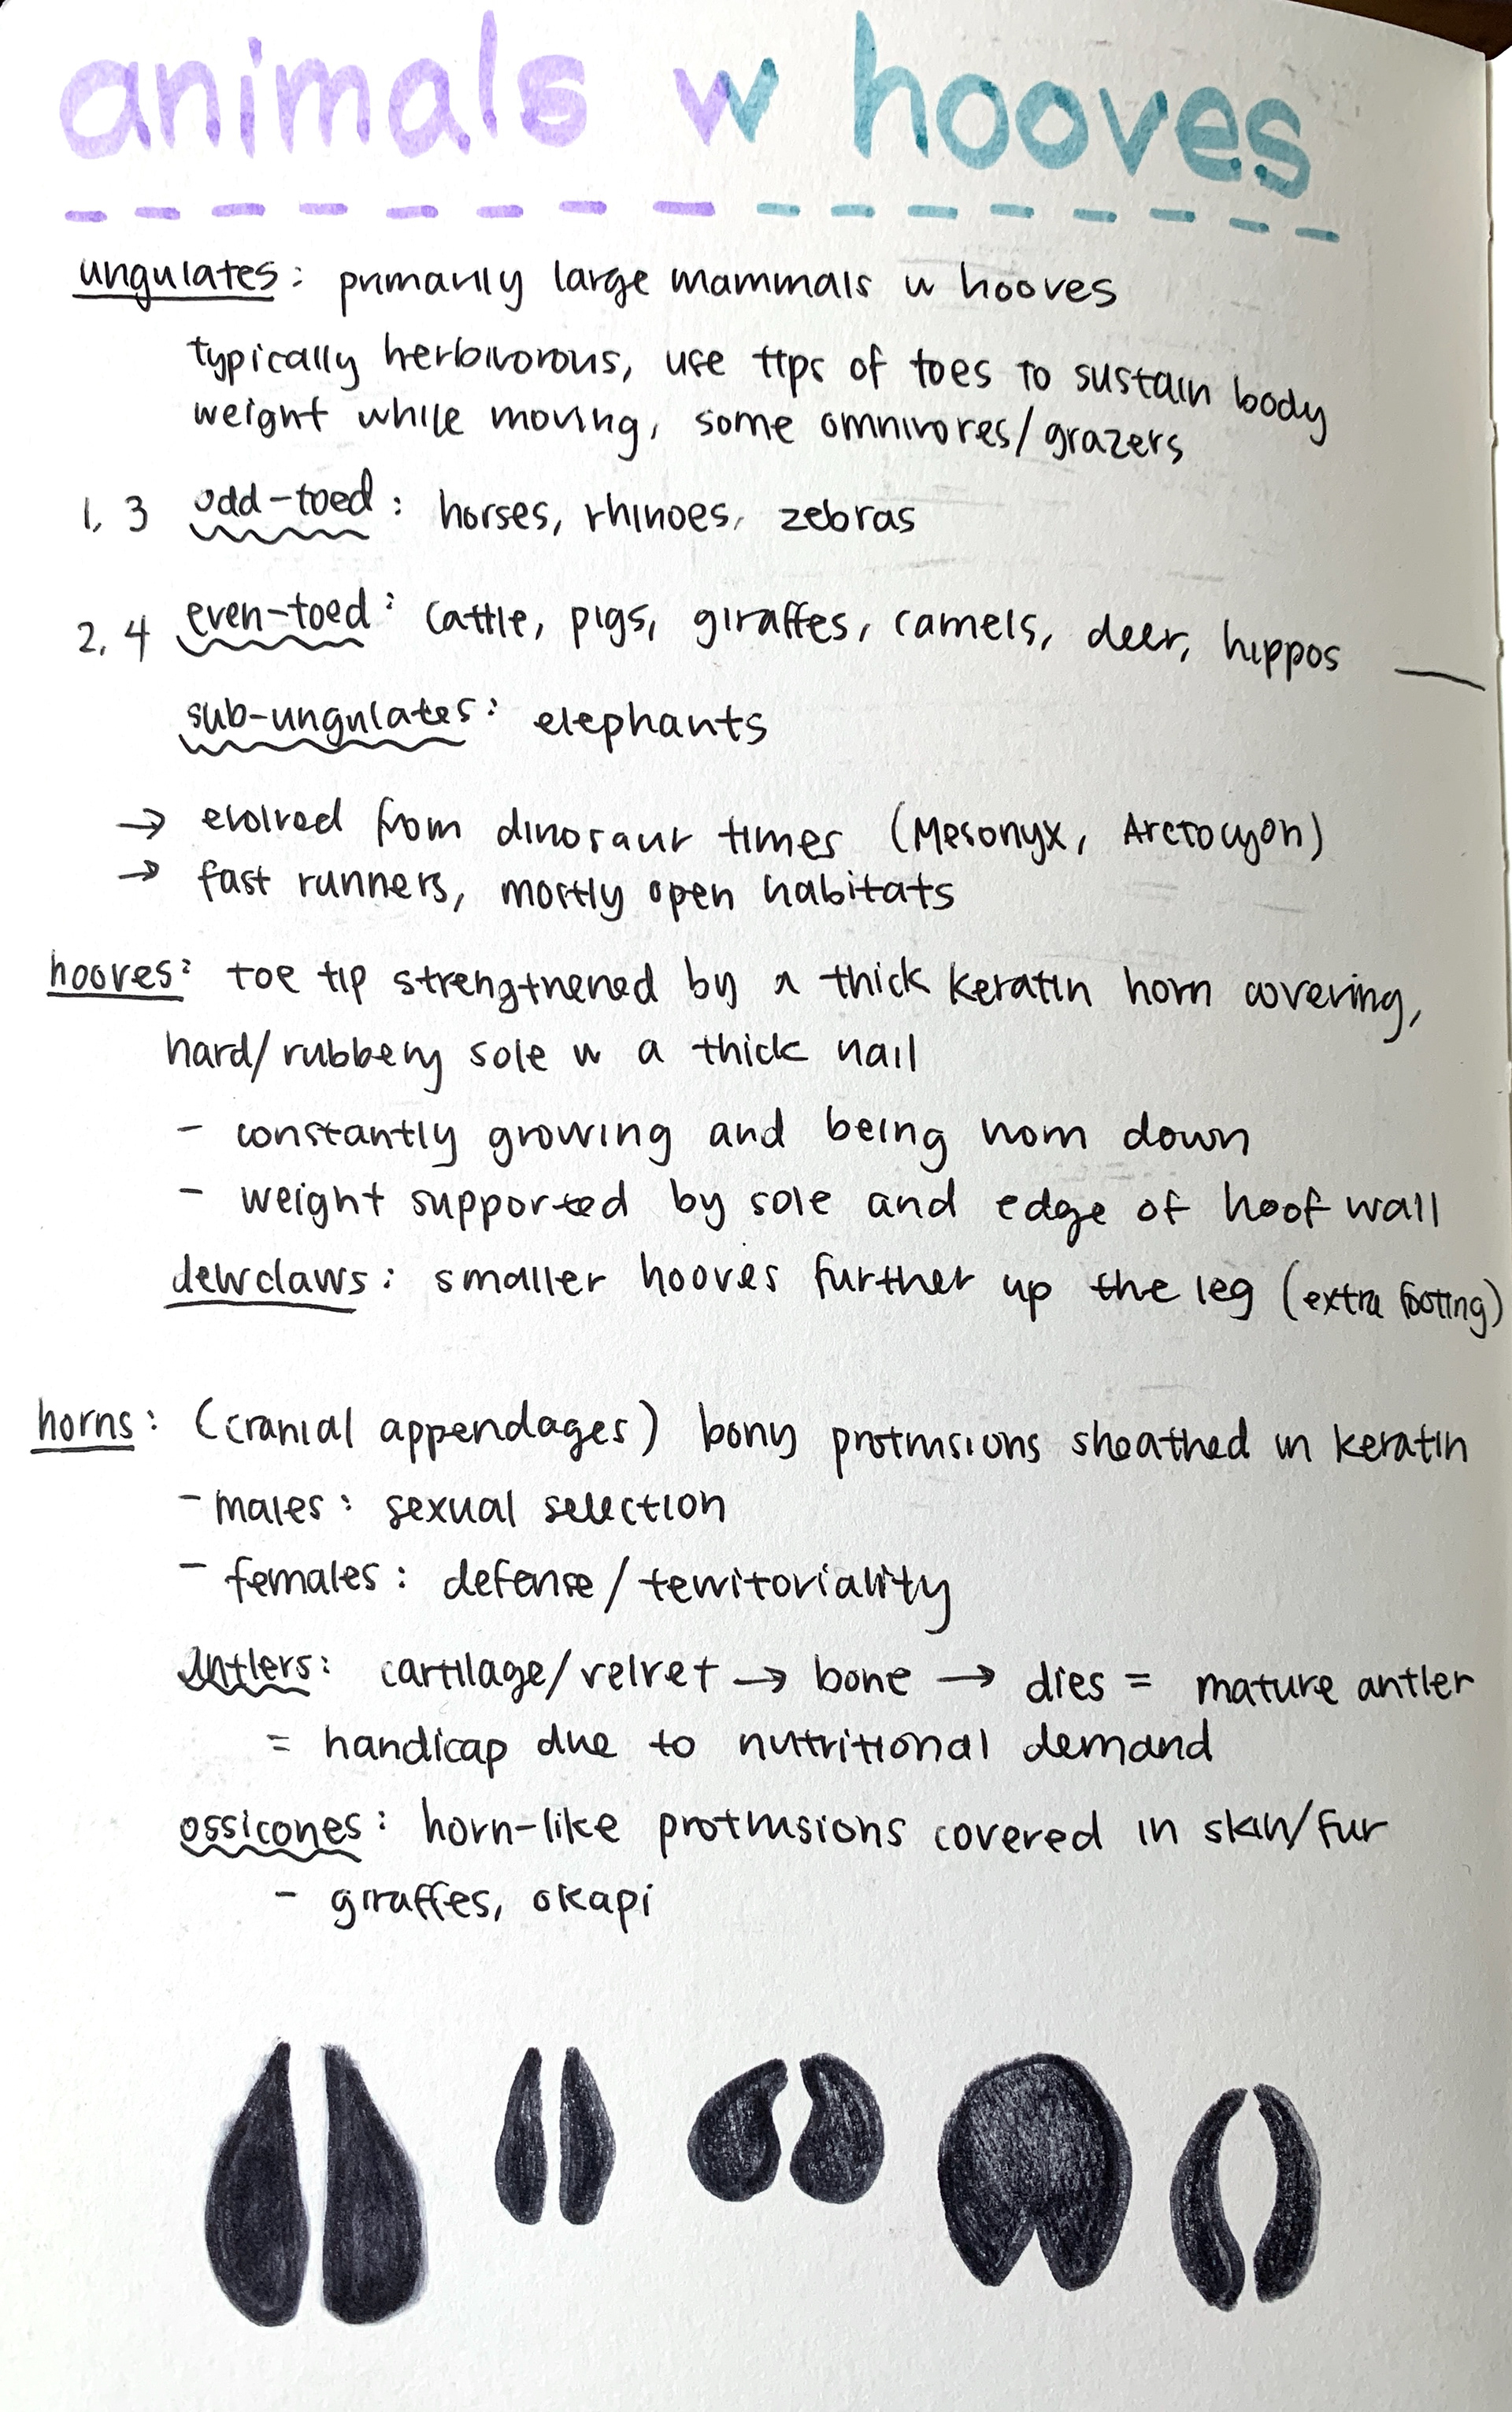 animals w hooves
ungulates: primarily large mammals w hooves
typically herbivorous, use tips of toes to sustain body
weight while moving, some omnivores/grazers
1, 3 odd-toed: horses, rhinoes, zebras
2, 4 even-toed: cattle, pigs, giraffes, camels, deer, hippos
sub-ungulates: elephants
→ evolved from dinosaur times (Mesonyx, Arctocyon)
→ fast runners, mostly open habitats
hooves: toe tip strengthened by a thick keratin horn covering,
hard/rubbery sole w a thick nail
- constantly growing and being worn down
- weight supported by sole and edge of hoof wall
dewclaws: smaller hooves further up the leg (extra footing)
horns: (cranial appendages) bony protrusions sheathed in keratin
- males: sexual selection
- females: defense/territoriality
antlers: cartilage/velvet → bone → dies = mature antler
= handicap due to nutritional demand
ossicones: horn-like protrusions covered in skin/fur
- giraffes, okapi